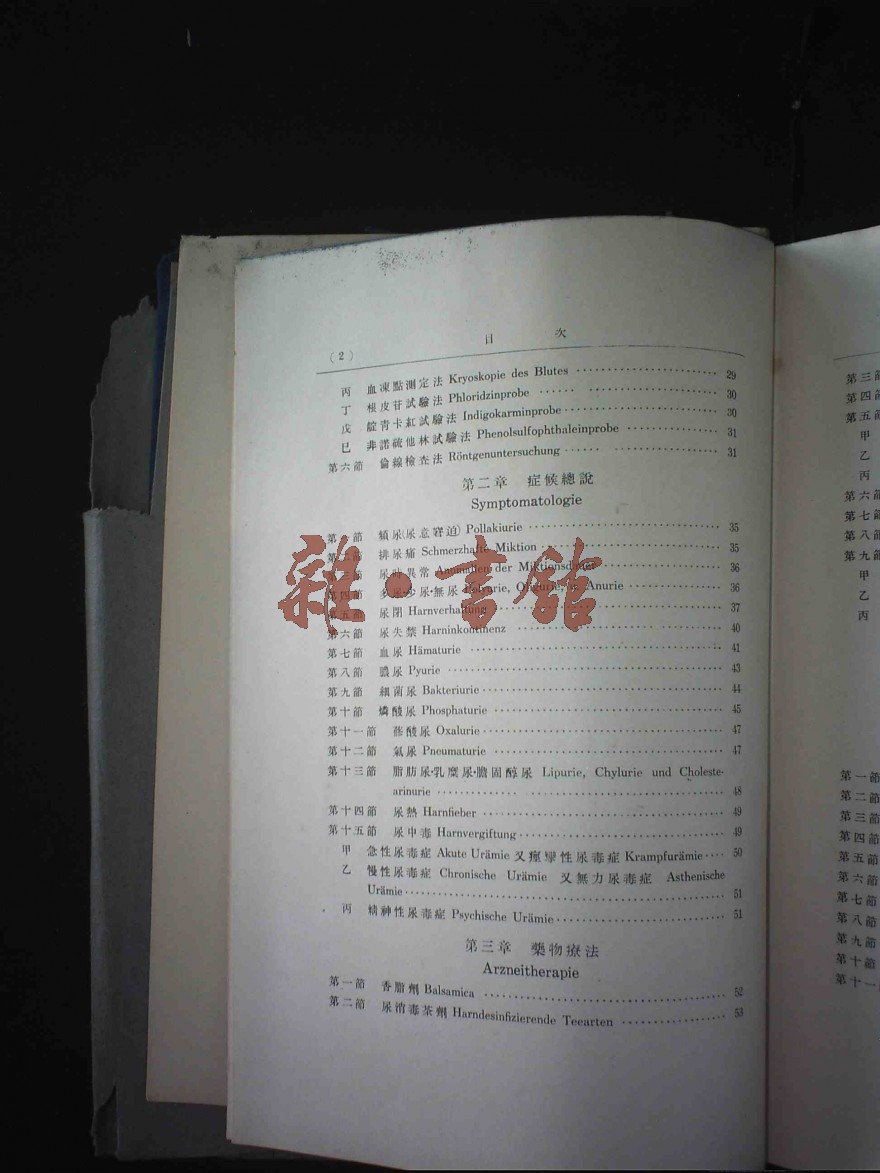 目 次
(2)
丙 血凍點測定法 Kryoskopie des Blutes 29
丁 根皮苷試驗法 Phloridzinprobe 30
戊 靛靑卡紅試驗法 Indigokarminprobe 30
巳 非諾硫他林試驗法 Phenolsulfophthaleinprobe 31
第六節 倫線檢查法 Röntgenuntersuchung 31
第二章 症候總說
Symptomatologie
第一節 頻尿(尿意窘迫) Pollakiurie 35
第二節 排尿痛 Schmerzhafte Miktion 35
第三節 尿時異常 Anomalien der Miktionsdauer 36
第四節 多尿·少尿·無尿 Polyurie, Oligurie, u. Anurie 36
第五節 尿閉 Harnverhaltung 37
第六節 尿失禁 Harninkontinenz 40
第七節 血尿 Hämaturie 41
第八節 膿尿 Pyurie 43
第九節 細菌尿 Bakteriurie 44
第十節 燐酸尿 Phosphaturie 45
第十一節 蓚酸尿 Oxalurie 47
第十二節 氣尿 Pneumaturie 47
第十三節 脂肪尿·乳糜尿·膽固醇尿 Lipurie, Chylurie und Choleste-
arinurie 48
第十四節 尿熱 Harnfieber 49
第十五節 尿中毒 Harnvergiftung 49
甲 急性尿毒症 Akute Urämie 又痙攣性尿毒症 Krampfurämie 50
乙 慢性尿毒症 Chronische Urämie 又無力尿毒症 Asthenische
Urämie 51
丙 精神性尿毒症 Psychische Urämie 51
第三章 藥物療法
Arzneitherapie
第一節 香脂劑 Balsamica 52
第二節 尿消毒茶劑 Harndesinfizierende Teearten 53
雜·書館
第三節
第四節
第五節
甲
乙
丙
第六節
第七節
第八節
第九節
甲
乙
丙
第一節
第二節
第三節
第四節
第五節
第六節
第七節
第八節
第九節
第十節
第十一